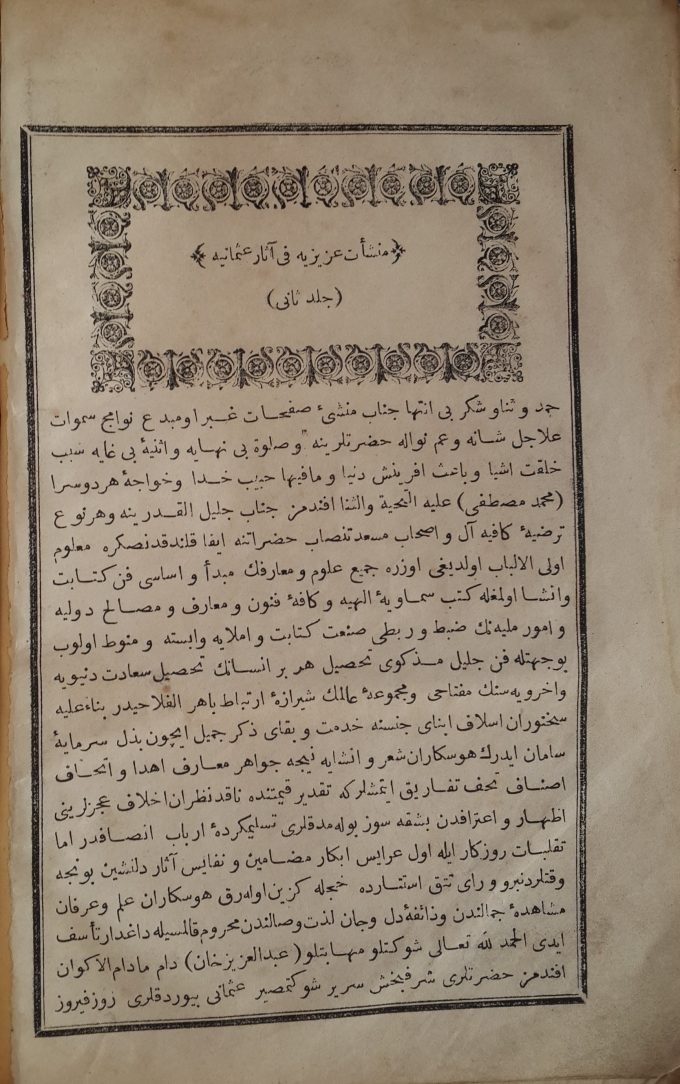 منشأت عزیزیه فی آثار عثمانیه
(جلد ثانی)
حمد و ثناو شکر بی انتها جناب منشیٔ صفحات غبرا ومبدع نوامج سموات
علاجل شانه وعم نواله حضرتلرینه و صلوة بی نهایه و اثنیهٔ بی غایه سبب
خلقت اشیا و باعث افرینش دنیا و مافیها حبیب خدا وخواجهٔ هردوسرا
(محمد مصطفی) علیه التحیة والثنا افندمز جناب جلیل القدرینه وهرنوع
ترضیهٔ کافیه آل و اصحاب مسعدتنصاب حضراتنه ایفا قلندقدنصکره معلوم
اولی الالباب اولدیغی اوزره جمیع علوم و معارفك مبدأ و اساسی فن کتابت
وانشا اولمغله کتب سماویهٔ الهیه و کافهٔ فنون و معارف و مصالح دولیه
و امور ملیه‌نك ضبط و ربطی صنعت کتابت و املایه وابسته و منوط اولوب
بوجهتله فن جلیل مذکوی تحصیل هر بر انسانك تحصیل سعادت دنیویه
واخرویه‌سنك مفتاحی ومجموعهٔ عالمك شیرازهٔ ارتباط باهر الفلاحیدر بناءعلیه
سخنوران اسلاف ابنای جنسنه خدمت و بقای ذکر جمیل ایچون بذل سرمایهٔ
سامان ایدرك هوسکاران شعر و انشایه نیجه جواهر معارف اهدا و اتحاف
اصناف تحف تفاریق ایتمشلرکه تقدیر قیمتنده ناقدنظران اخلاف عجزلرینی
اظهار و اعترافدن بشقه سوز بوله‌مدقلری تسلیمکردهٔ ارباب انصافدر اما
تقلبات روزکار ایله اول عرایس ابکار مضامین و نفایس آثار دلنشین بونجه
وقتلردنبرو و رای تتق استتارده خجله کزین اوله‌رق هوسکاران علم وعرفان
مشاهدهٔ جمالندن وذائقهٔ دل وجان لذت وصالندن محروم قالمسیله داغدارتأسف
ایدی الحمد لله تعالی شوکتلو مهابتلو (عبدالعزیزخان) دام مادام الاکوان
افندمز حضرتلری شرفبخش سریر شوکتمصیر عثمانی بیوردقلری روزفیروز